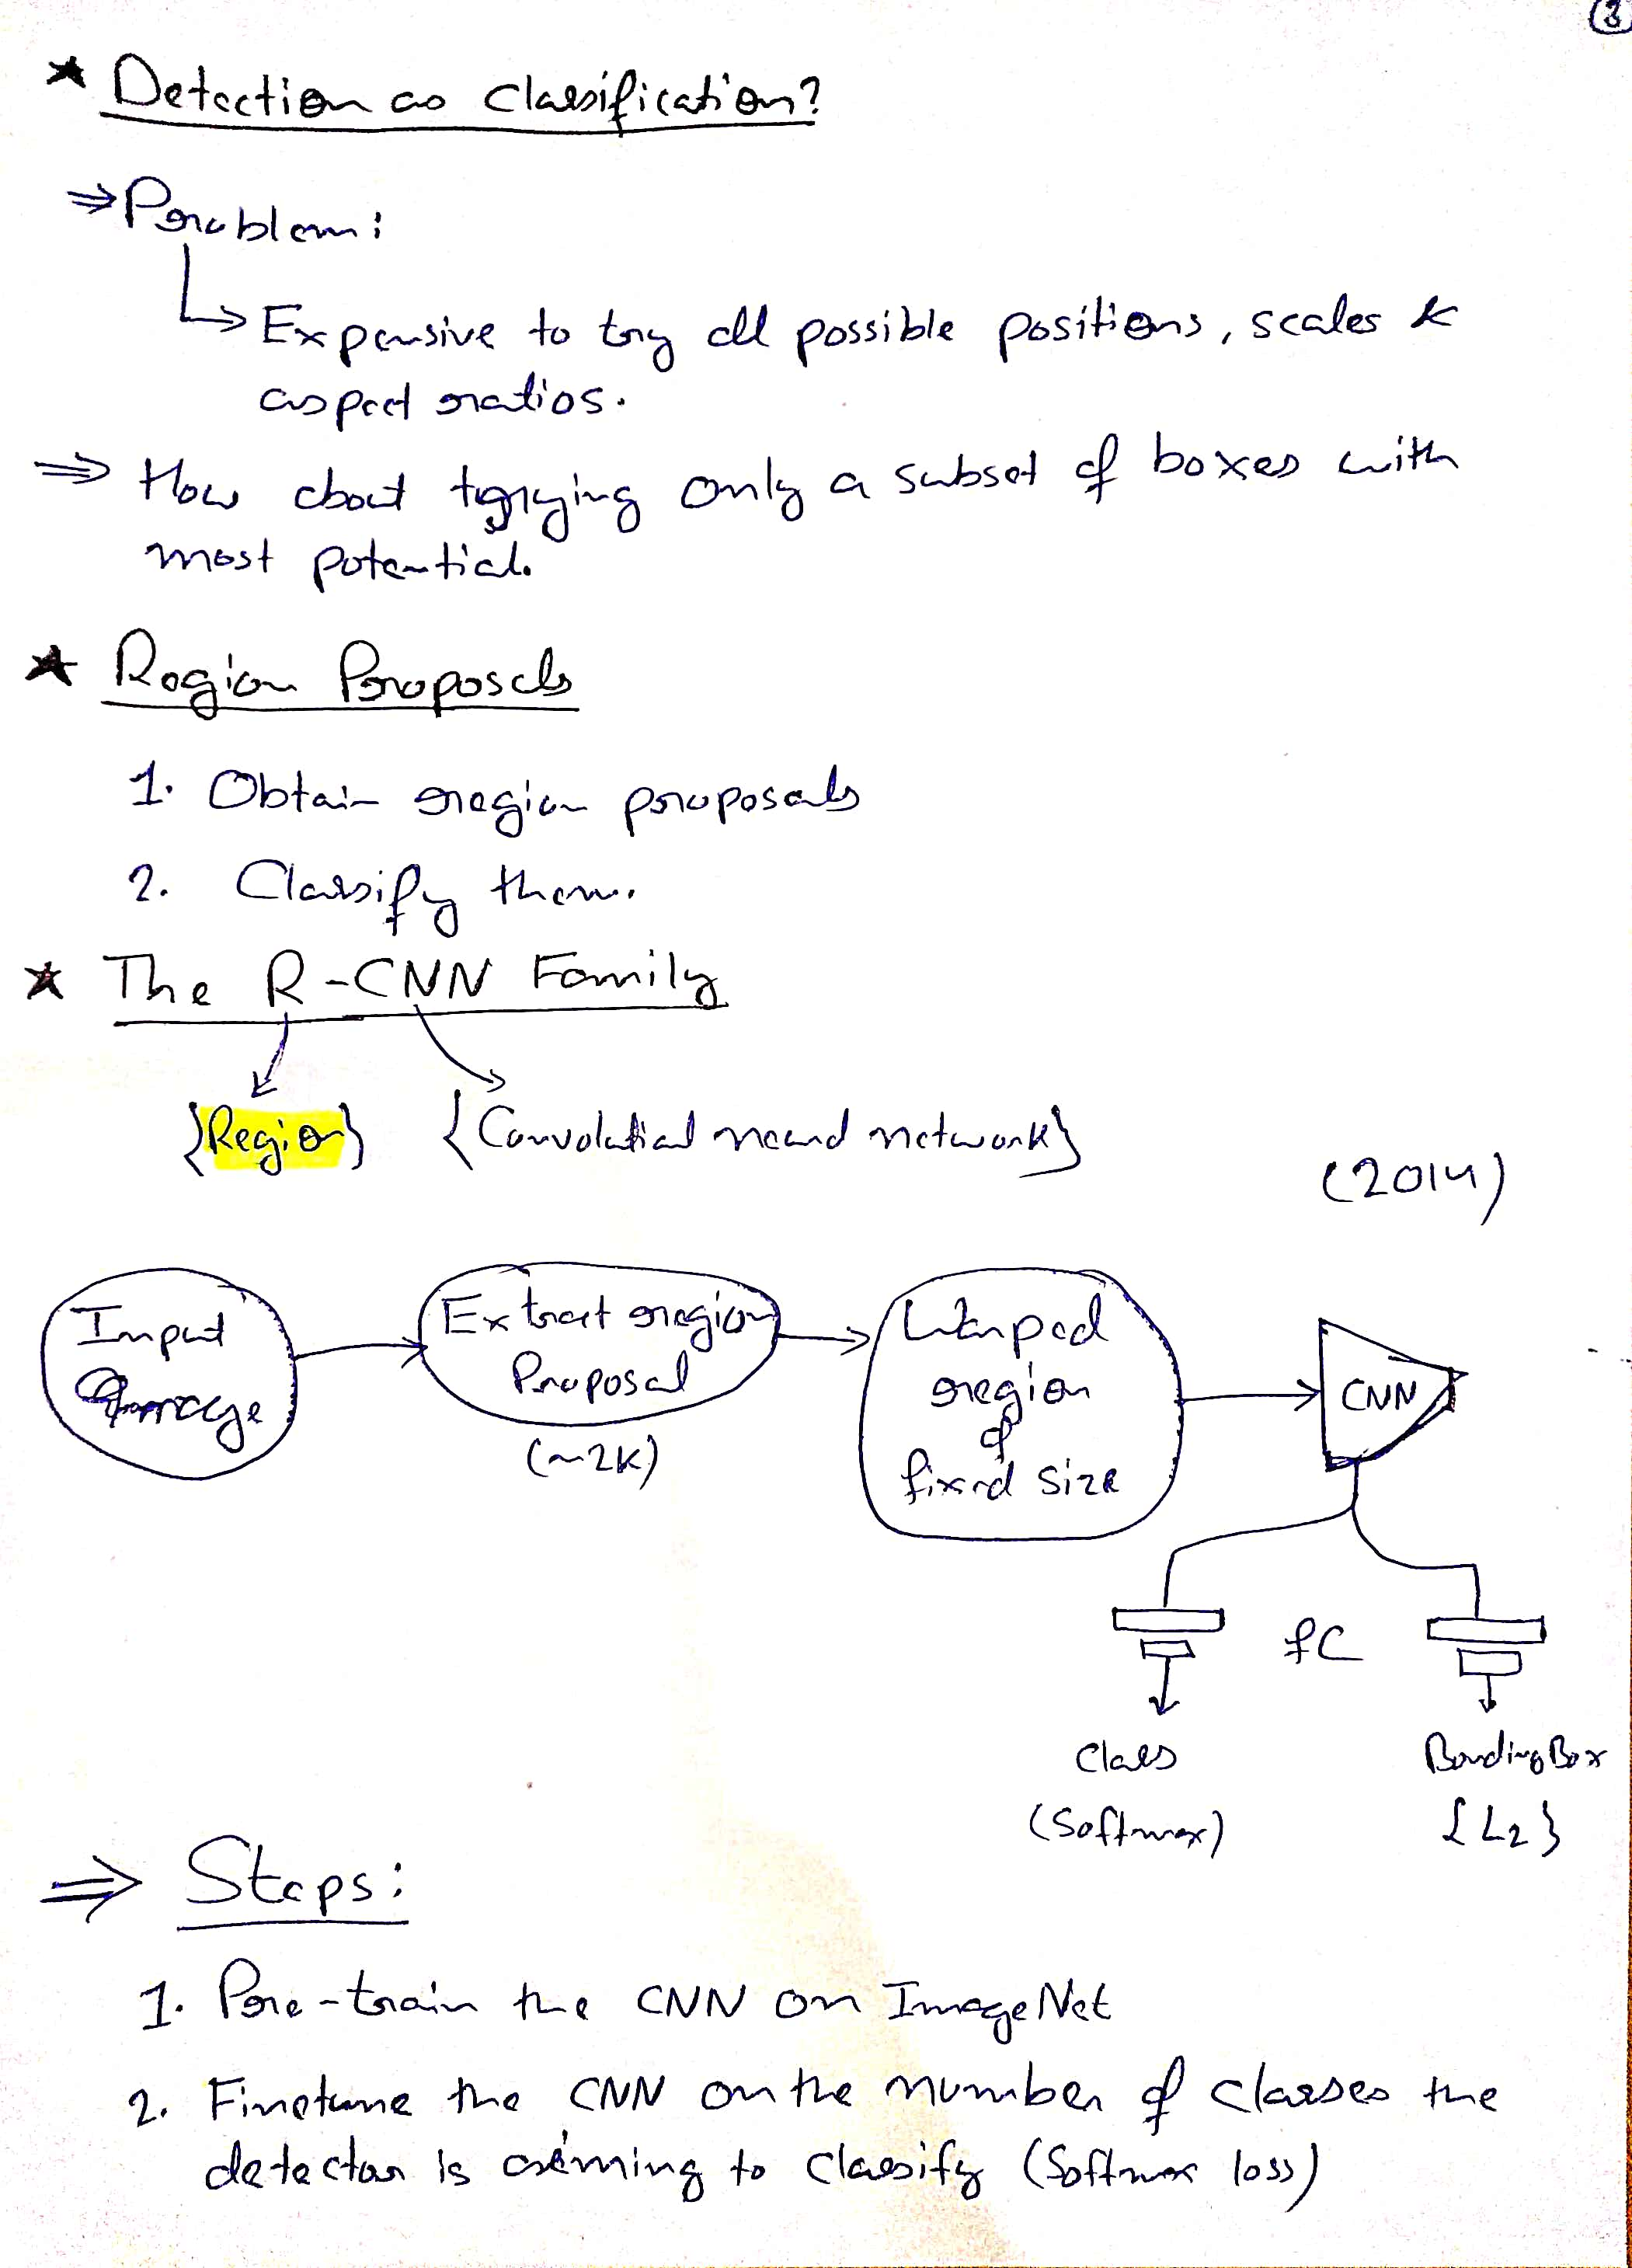 3
* Detection as classification?
⇒ Problem:
↳ Expensive to try all possible positions, scales &
aspect ratios.
⇒ How about trying only a subset of boxes with
most potential.
* Region Proposals
1. Obtain region proposals
2. Classify them.
* The R-CNN Family
{Region} {Convolutial neural network}
(2014)
Input
Image
Extract region
Proposal
(~2K)
Warped
region
of
fixed size
CNN
FC
Class
(Softmax)
Bounding Box
{L2}
⇒ Steps:
1. Pre-train the CNN on ImageNet
2. Finetune the CNN on the number of classes the
detector is aiming to classify (Softmax loss)